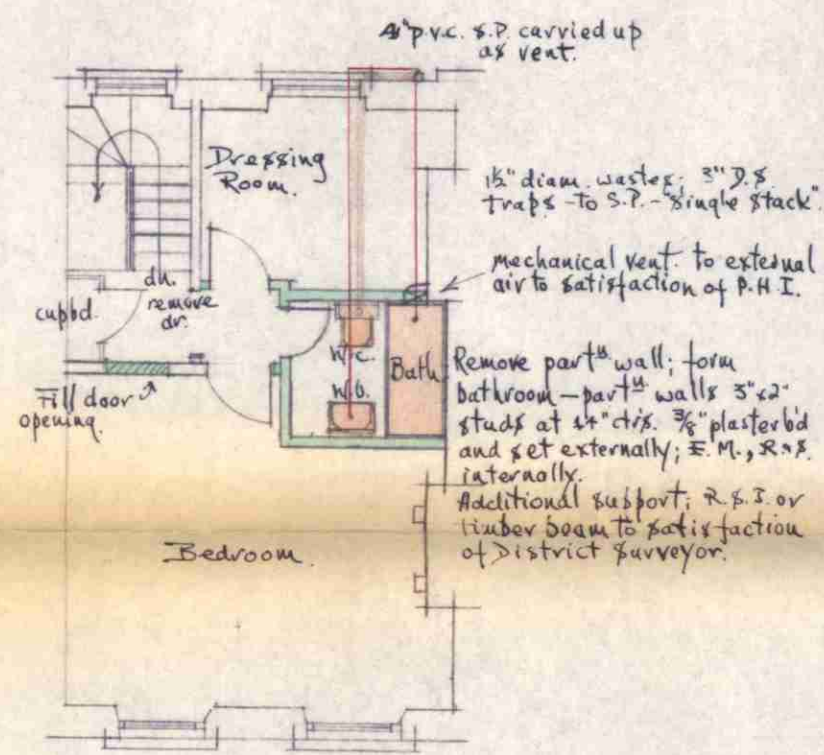 4" p.v.c. S.P. carried up
as vent.
Dressing
Room.
1½" diam. wastes; 3" D.S
traps - to S.P. - "Single stack".
mechanical vent. to external
air to satisfaction of P.H I.
dn.
remove
dr.
cupbd.
W.C.
Bath
W.b.
Fill door
opening.
Remove partⁿ wall; form
bathroom - partⁿ walls 3"x2"
studs at 14" ctrs. ⅜" plasterb'd
and set externally; E.M., R.&S.
internally.
Additional support; R.S.J. or
timber beam to satisfaction
of District Surveyor.
Bedroom.